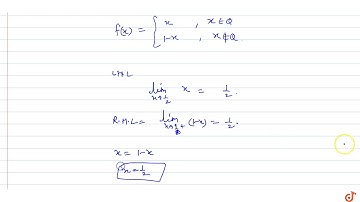 f(x) = { x , x ∈ Q
1-x , x ∉ Q
L.H.L
lim x→1/2 x = 1/2.
R.H.L = lim x→1/2+ (1-x) = 1/2.
x = 1-x
x = 1/2